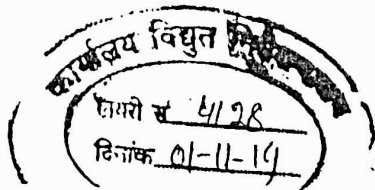 कार्यालय विद्युत
डायरी सं 4128
दिनांक 01-11-14